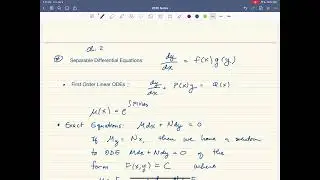 ch. 2
Separable Differential Equations: dy/dx = f(x) g(y)
• First Order Linear ODEs : dy/dx + P(x)y = Q(x)
μ(x) = e^∫P(x)dx
• Exact Equations: Mdx + Ndy = 0
If My = Nx, then we have a solution
to ODE Mdx + Ndy = 0 of the
form F(x,y) = C where